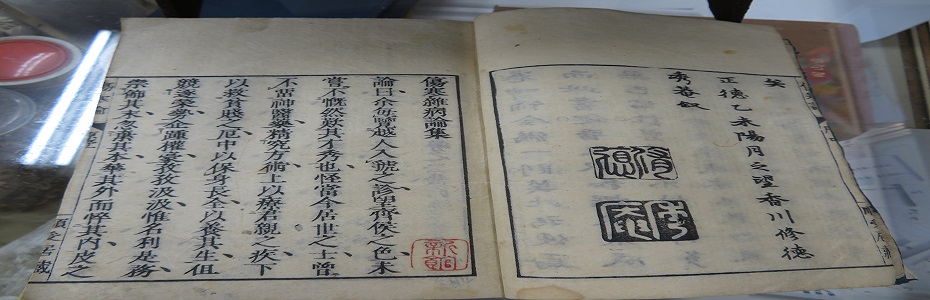 矣
正德乙未陽月之望香川修德
秀菴叙
傷寒雜病論集
論曰余每覽越人入虢之診望齊侯之色未
嘗不慨然歎其才秀也怪當今居世之士曾
不留神醫藥精究方術上以療君親之疾下
以救貧賤之厄中以保身長全以養其生但
競逐榮勢企踵權豪孜孜汲汲惟名利是務
崇飾其末忽棄其本華其外而悴其內皮之